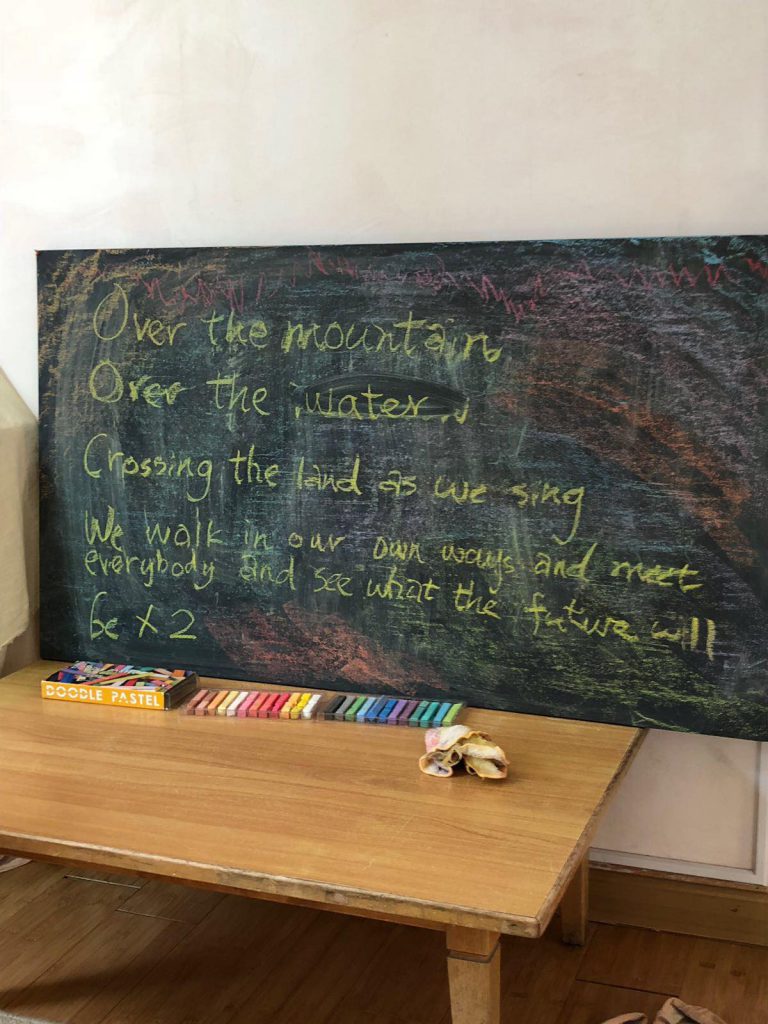 Over the mountain
Over the water
Crossing the land as we sing
We walk in our own ways and meet
everybody and see what the future will
be X 2
DOODLE PASTEL